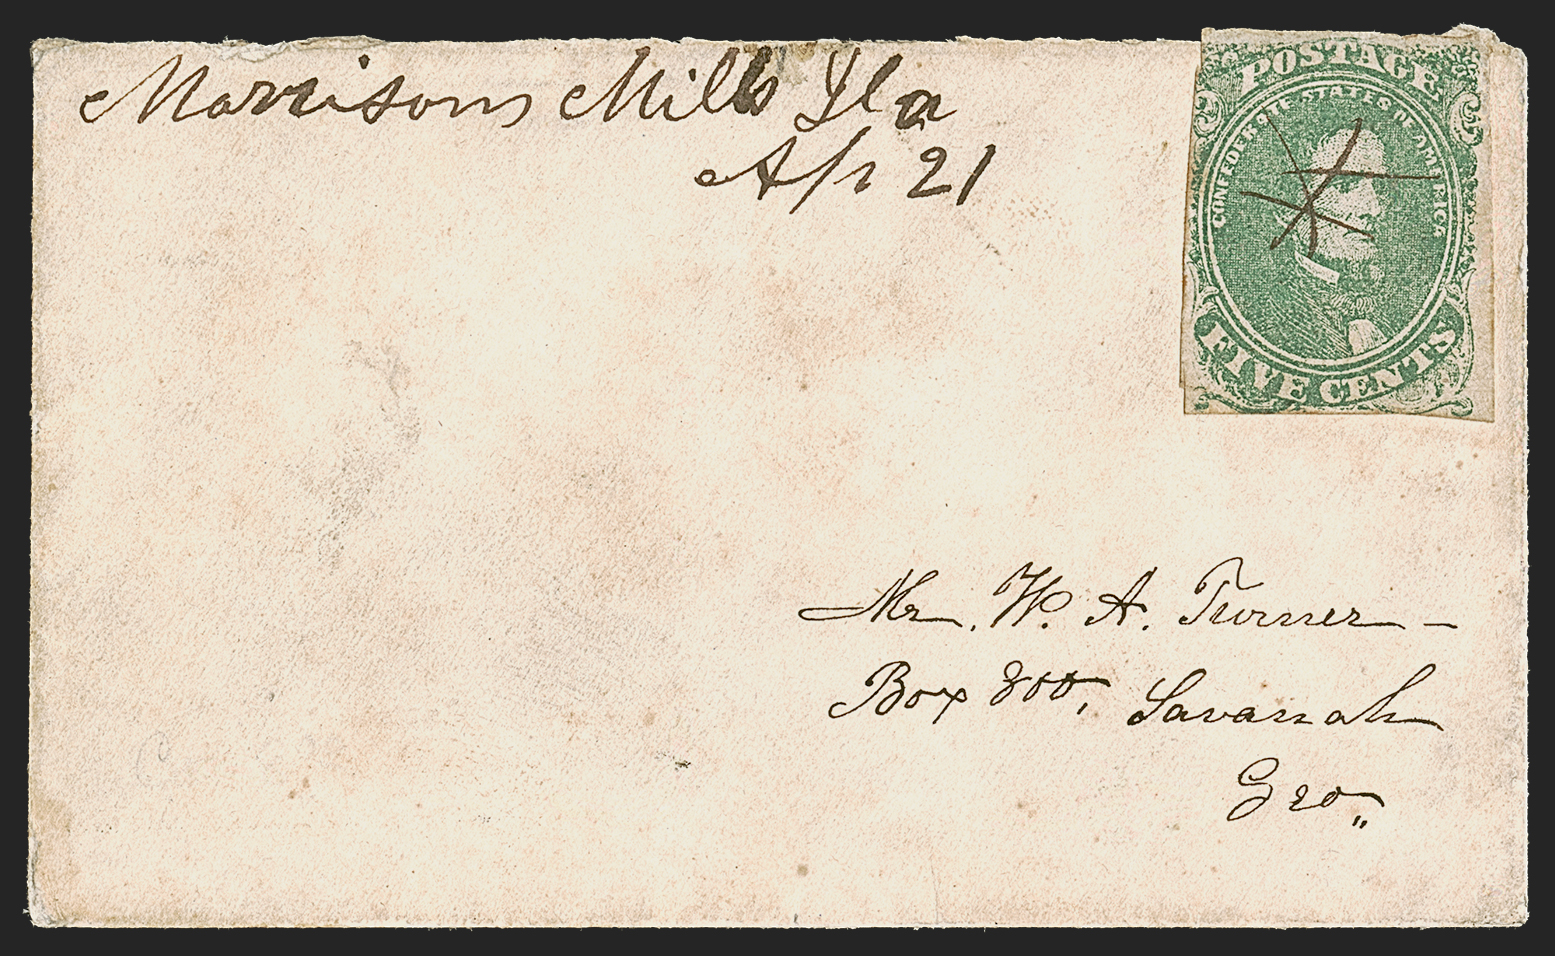 Morrisons Mills Fla
Apr 21
POSTAGE
CONFEDERATE STATES OF AMERICA
FIVE CENTS
Mr. W. A. Turner –
Box 300, Savannah
Geo,,